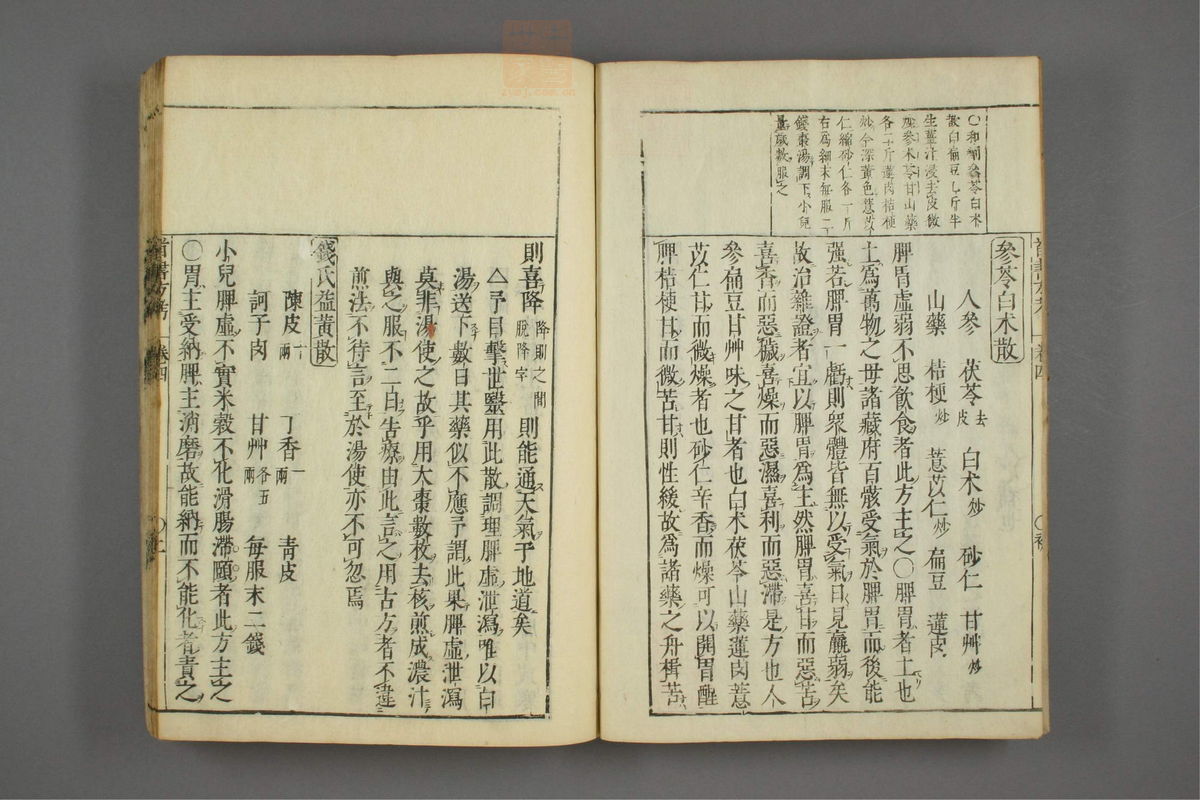 ○和劑參苓白朮
散白扁豆乚斤半
生薑汁浸去皮微
炒參朮苓甘山藥
各二斤蓮肉桔梗
炒令深黃色薏苡
仁縮砂仁各一斤
右爲細末每服二
錢棗湯調下小兒
量歲數服之
參苓白朮散
人參 茯苓去皮 白朮炒 砂仁 甘艸炒
山藥 桔梗炒 薏苡仁炒 扁豆 蓮皮
脾胃虛弱不思飲食者此方主之○脾胃者土也
土爲萬物之毋諸藏府百骸受氣於脾胃而後能
强若脾胃一虧則衆體皆無以受氣日見羸弱矣
故治雜證者宜以脾胃爲主然脾胃喜甘而惡苦
喜香而惡穢喜燥而惡濕喜利而惡滯是方也人
參扁豆甘艸味之甘者也白朮茯苓山藥蓮肉薏
苡仁甘而微燥者也砂仁辛香而燥可以開胃醒
脾桔梗甘而微苦甘則性緩故爲諸藥之舟楫苦
則喜降降則之間脫降字則能通天氣于地道矣
△予目擊世毉用此散調理脾虛泄瀉唯以白
湯送下數日其藥似不應予謂此果脾虛泄瀉
莫非湯使之故乎用大棗數枚去核煎成濃汁
與之服不二日告療由此言之用古方者不違
煎法不待言至於湯使亦不可忽焉
錢氏益黃散
陳皮一兩 丁香一兩 靑皮
訶子肉 甘艸各五兩 每服末二錢
小兒脾虛不實米穀不化滑腸滯頤者此方主之
○胃主受納脾主消磨故能納而不能化者責之